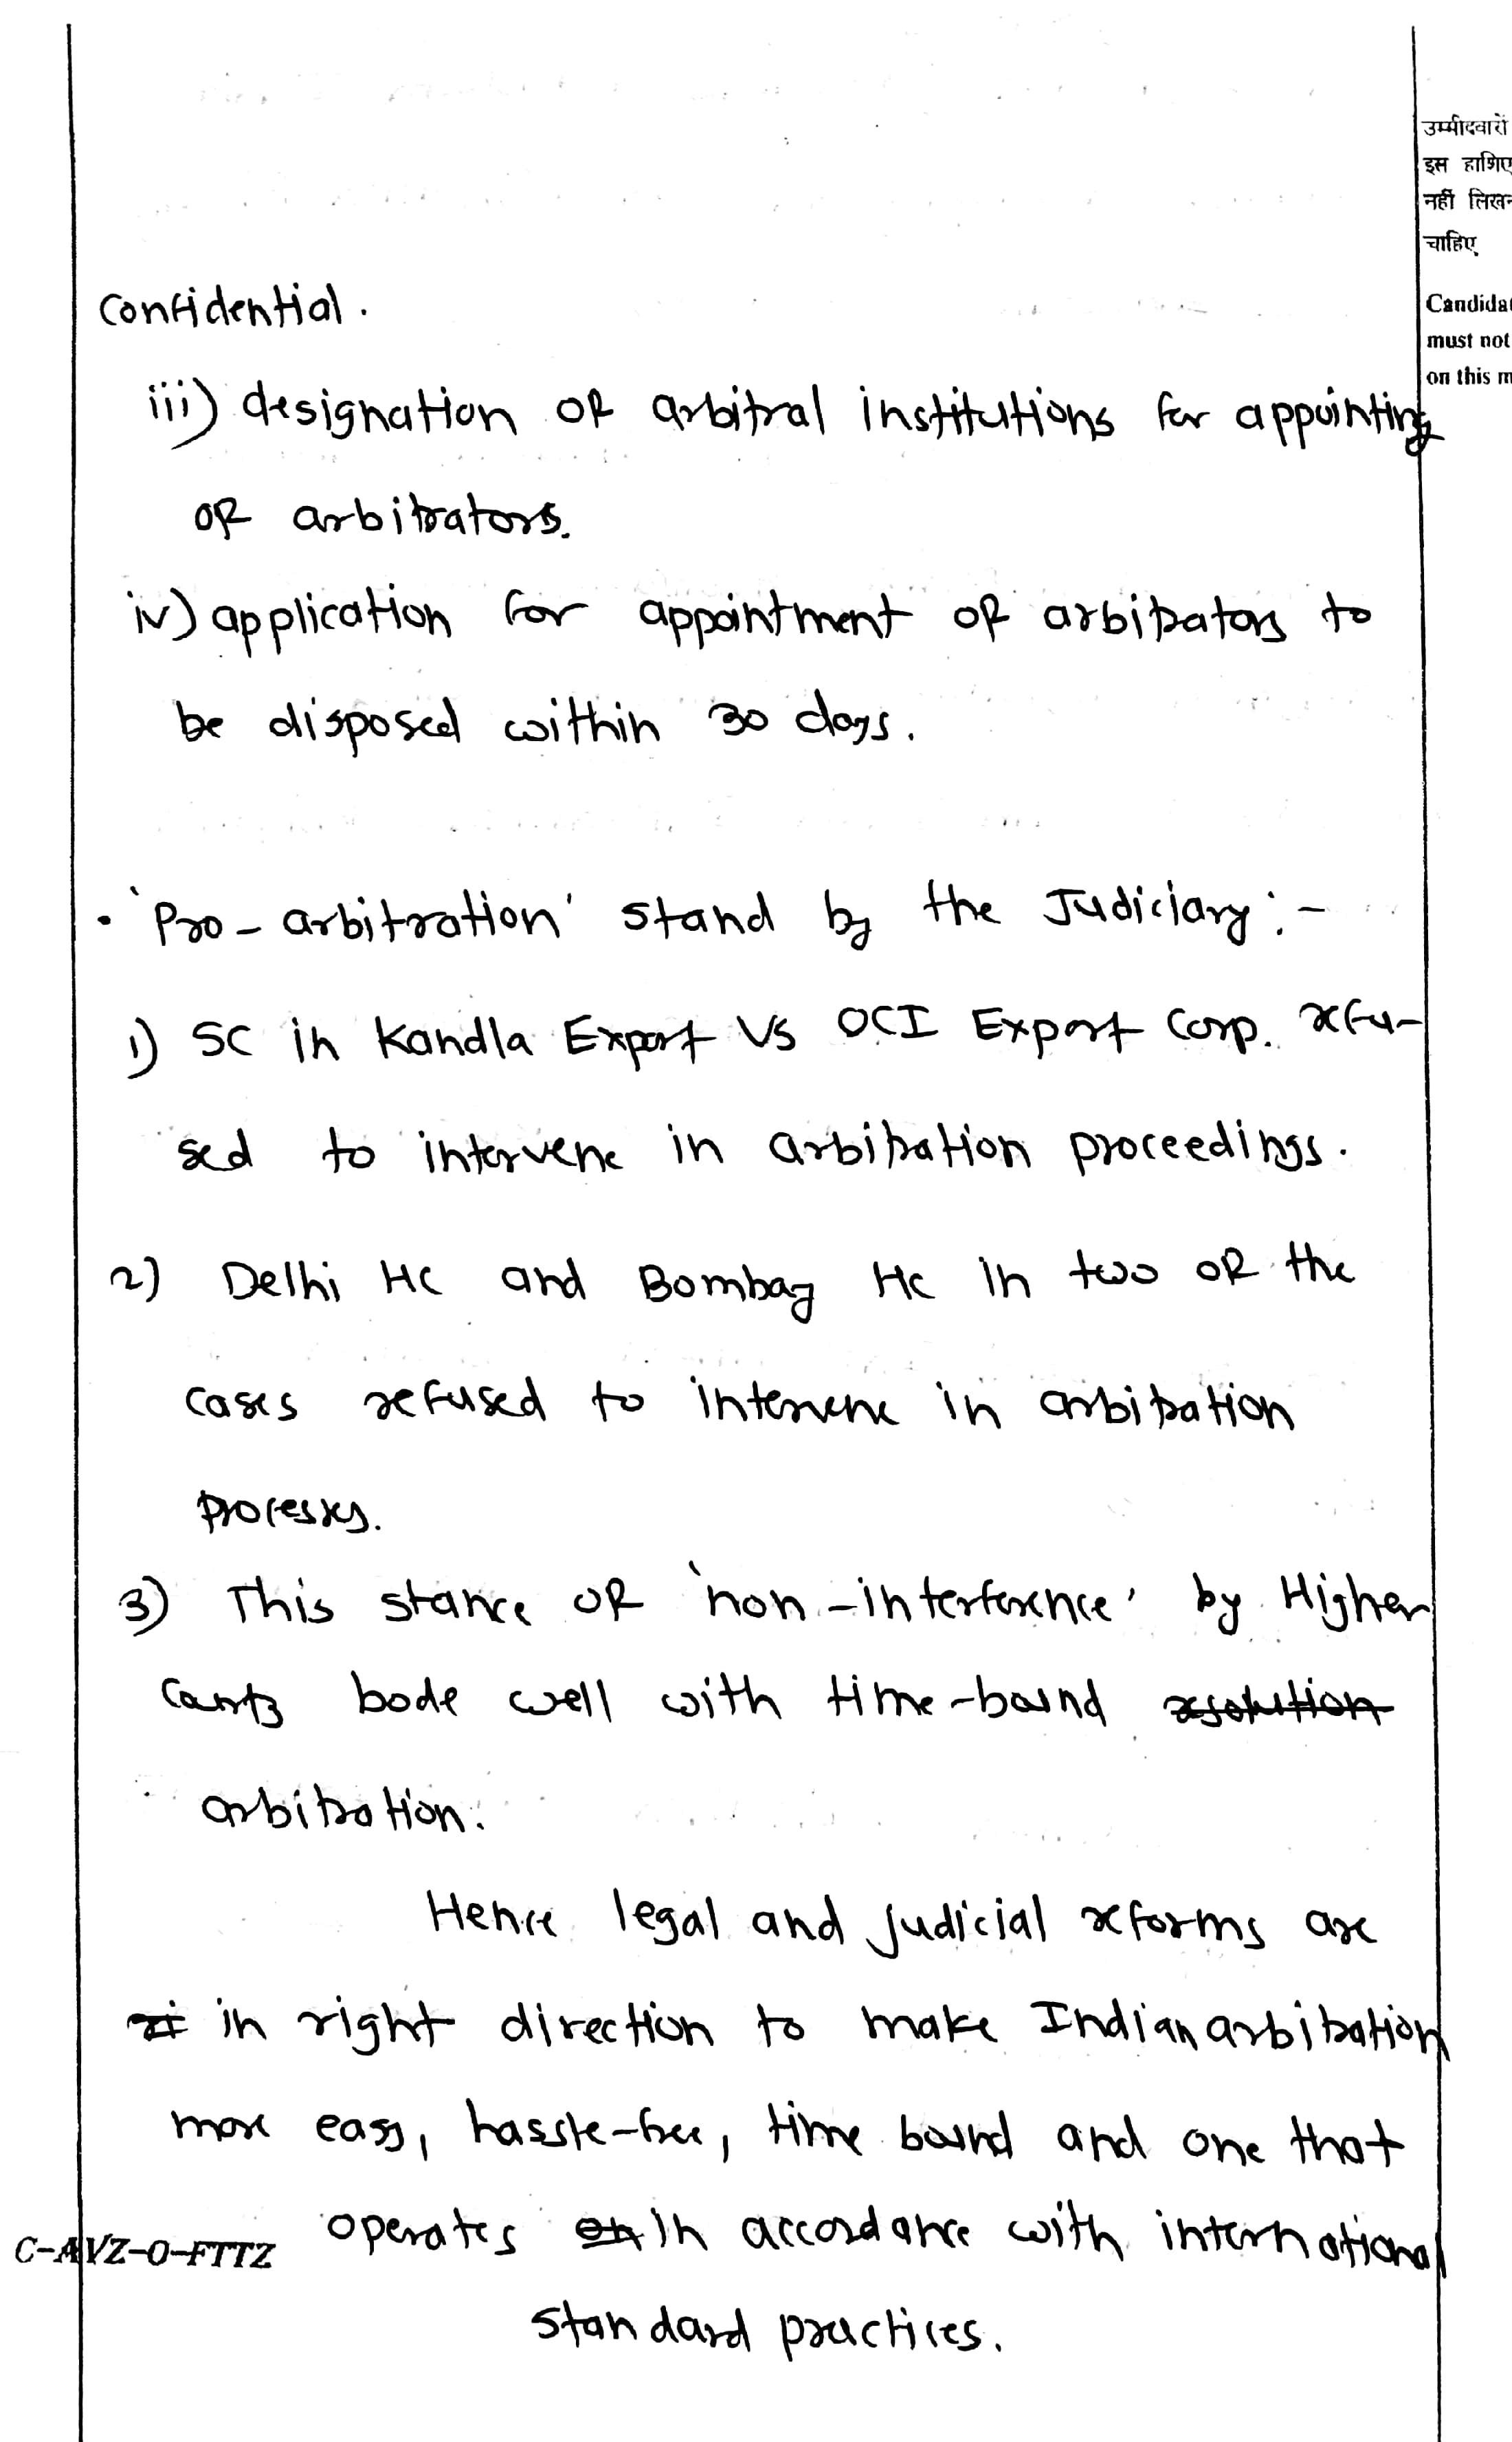 उम्मीदवारों
इस हाशिए
नहीं लिखन
चाहिए
Candidat
must not
on this m
Confidential.
iii) designation of arbitral institutions for appointing
of arbitrators.
iv) application for appointment of arbitrators to
be disposed within 30 days.
• 'Pro-arbitration' stand by the Judiciary:-
1) SC in Kandla Export Vs OCI Export Corp. refu-
sed to intervene in arbitration proceedings.
2) Delhi HC and Bombay HC in two of the
cases refused to intervene in arbitration
processes.
3) This stance of 'non-interference' by Higher
Courts bode well with time-bound resolution
arbitration.
Hence legal and judicial reforms are
in right direction to make Indian arbitration
more easy, hassle-free, time bound and one that
operates on in accordance with international
standard practices.
C-AVZ-O-FTTZ